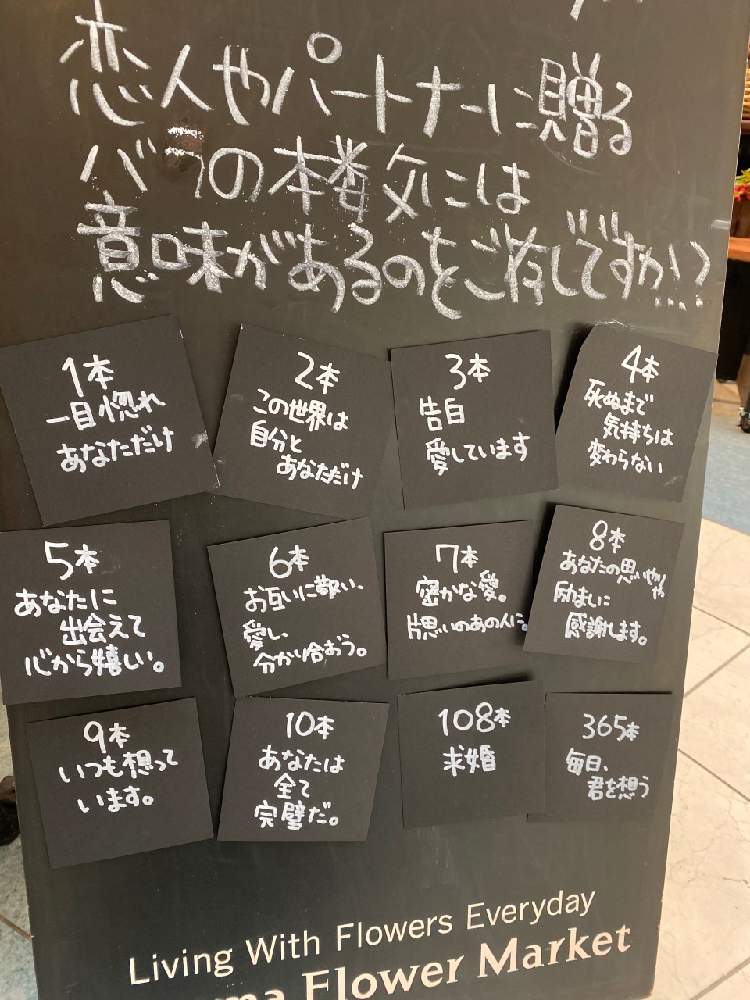 恋人やパートナーに贈る
バラの本数には
意味があるのをご存じですか!?
1本
一目惚れ
あなただけ
2本
この世界は
自分と
あなただけ
3本
告白
愛しています
4本
死ぬまで
気持ちは
変わらない
5本
あなたに
出会えて
心から嬉しい。
6本
お互いに敬い、
愛し、
分かり合おう。
7本
密かな愛。
片思いのあの人に。
8本
あなたの思いやりや
励ましに
感謝します。
9本
いつも想って
います。
10本
あなたは
全て
完璧だ。
108本
求婚
365本
毎日、
君を想う
Living With Flowers Everyday
Flower Market